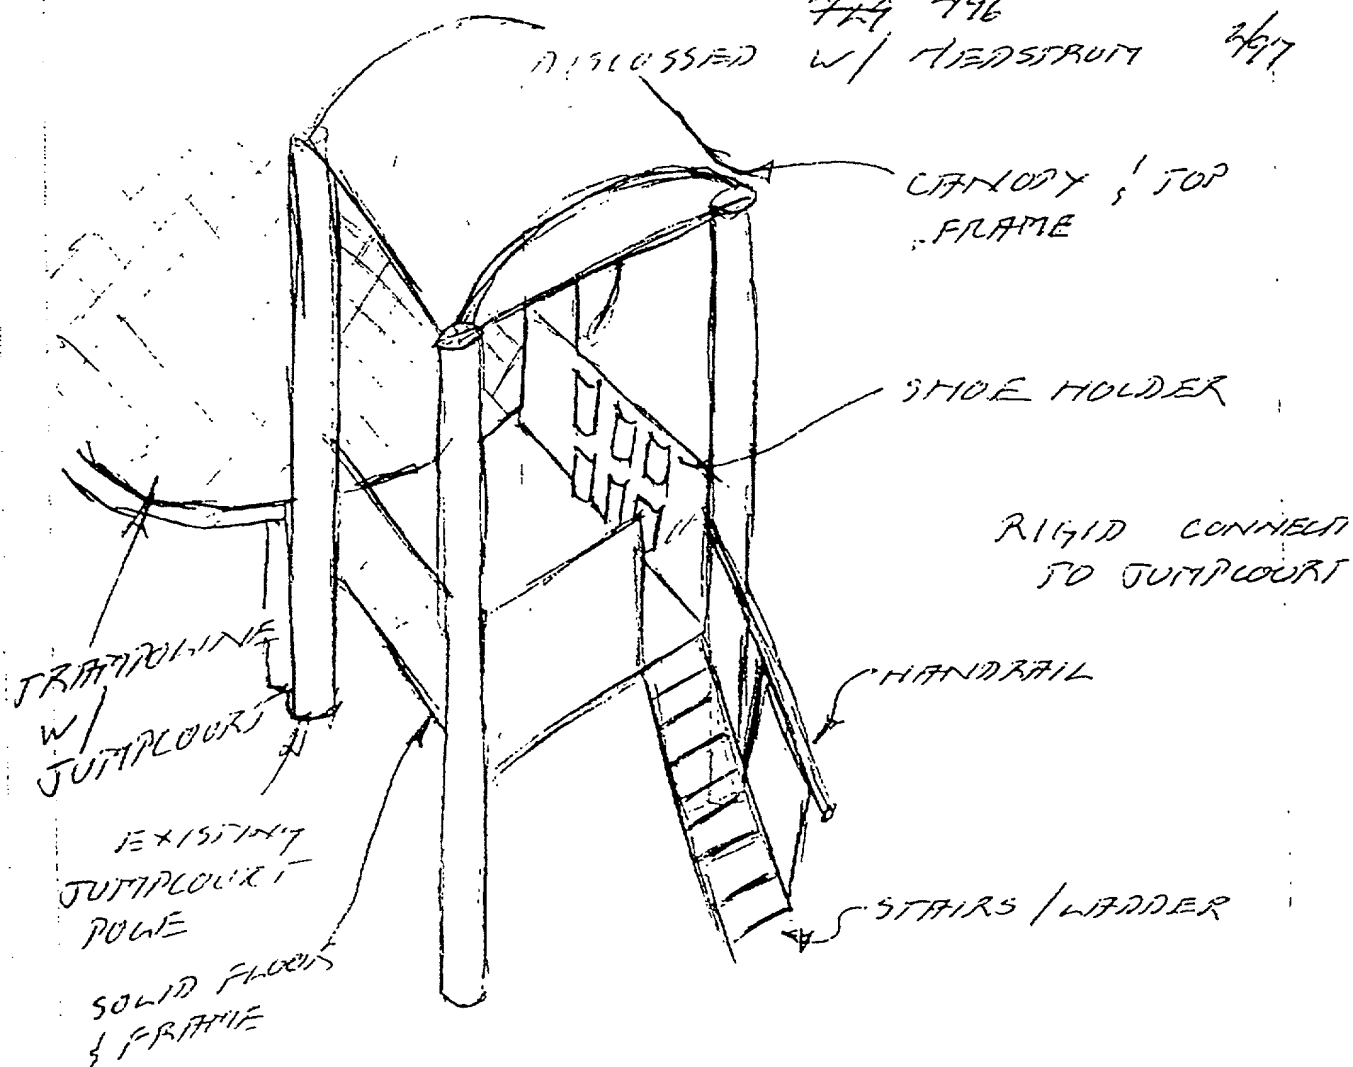 796
DISCUSSED W/ HEDSTROM 2/97
CANOPY & TOP
FRAME
SHOE HOLDER
RIGID CONNECT
TO JUMPCOURT
HANDRAIL
STAIRS / LADDER
TRAMPOLINE
W/
JUMPCOURT
EXISTING
JUMPCOURT
POLE
SOLID FLOOR
& FRAME